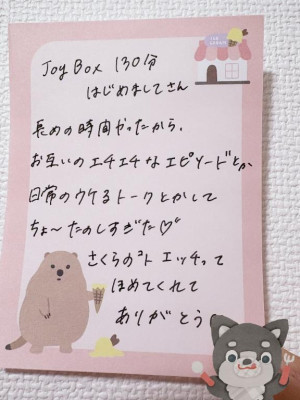 Joy Box 130分
はじめましてさん
長めの時間だったから、
お互いのエチエチなエピソードとか
日常のウケるトークとかして
ちょ〜たのしすぎた♡
さくらのコト エッチって
ほめてくれて
ありがとう